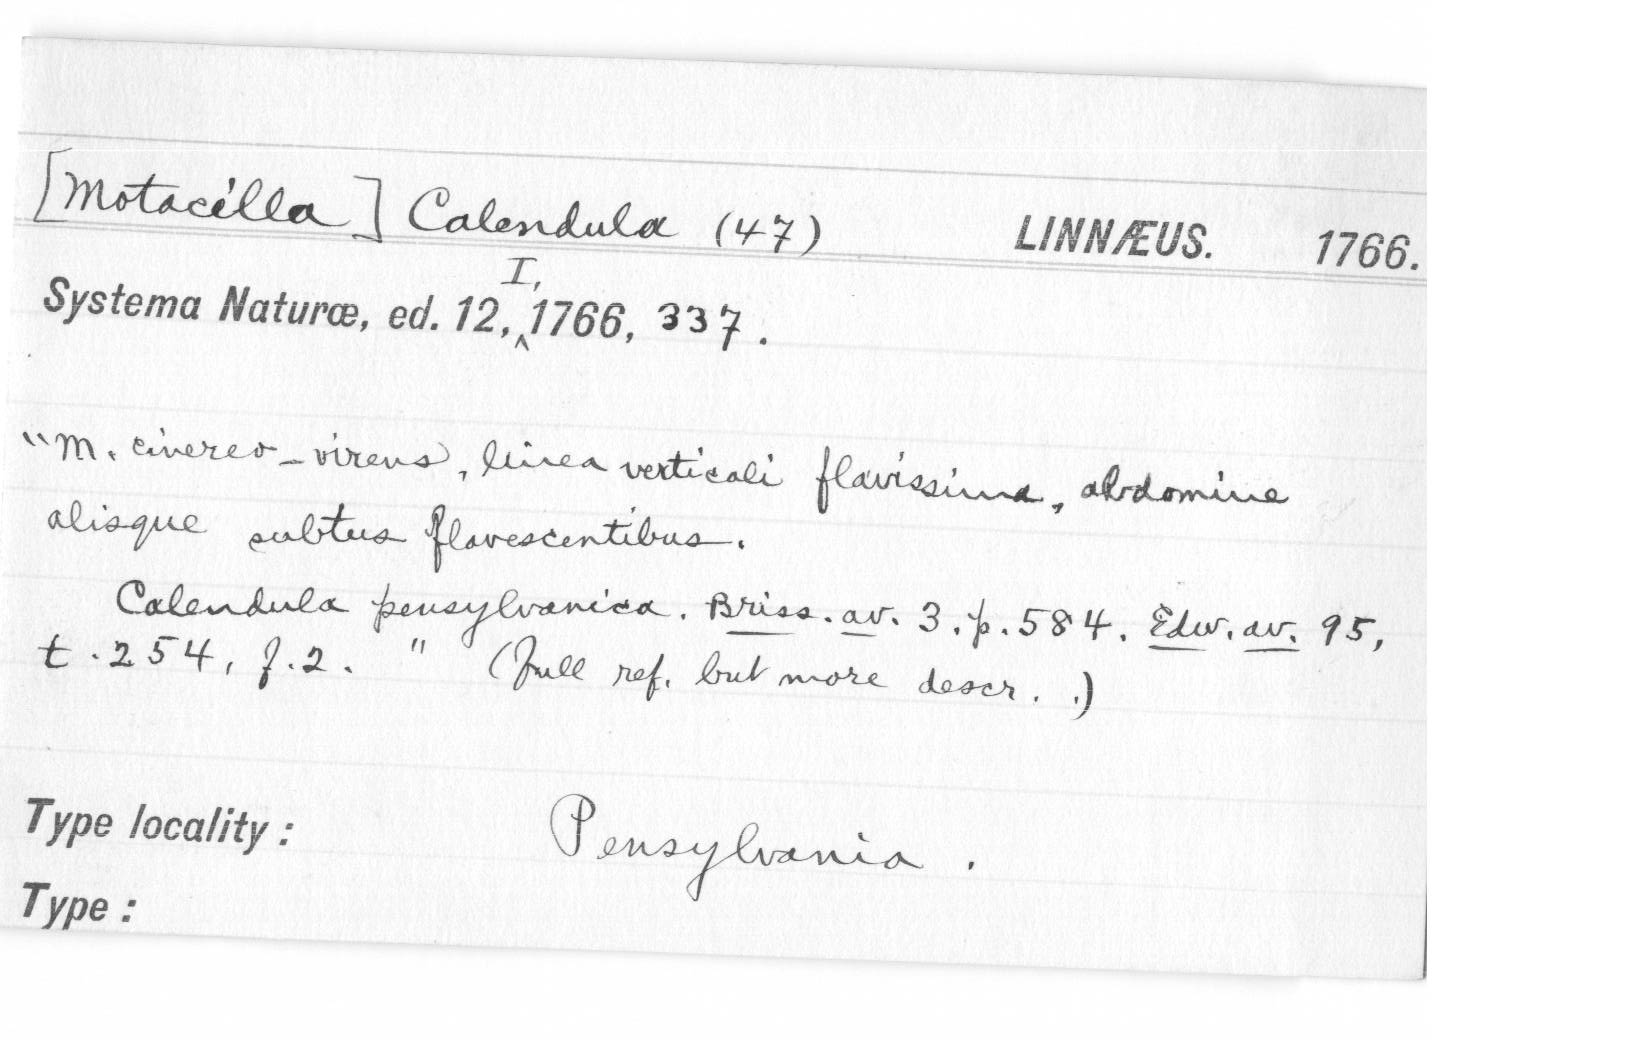 [Motacilla] Calendula (47) LINNÆUS. 1766.
Systema Naturæ, ed. 12, I, 1766, 337.
"M. cinereo-virens, linea verticali flavissima, abdomine
alisque subtus flavescentibus.
Calendula pensylvanica. Briss. av. 3. p. 584. Edw. av. 95,
t. 254, f. 2. " (Full ref. but more descr. .)
Type locality: Pensylvania.
Type: